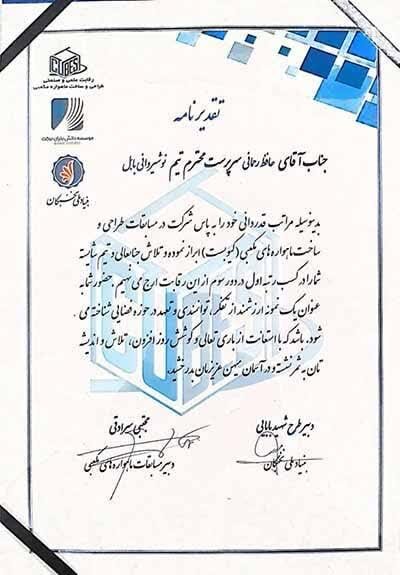 ICUBES
رقابت علمی و صنعتی
طراحی و ساخت ماهواره مکعبی
موسسه دانش‌بنیان برکت
بنیاد ملی نخبگان
تقدیرنامه
جناب آقای حافظ رحمانی سرپرست محترم تیم نوشیروانی بابل
بدینوسیله مراتب قدردانی خود را به پاس شرکت در مسابقات طراحی و
ساخت ماهواره های مکعبی (کیوبست) ابراز نموده و تلاش جنابعالی و تیم شایسته
شما را در کسب رتبه اول در دور سوم از این رقابت ارج می نهیم. حضور شما به
عنوان یک نمونه ارزشمند از تفکر، توانمندی و تعهد در حوزه فضایی شناخته می
شود. باشد که با استعانت از باری تعالی و کوشش روز افزون، تلاش و اندیشه
تان به ثمر نشسته و در آسمان میهن عزیزمان بدرخشید.
دبیر طرح شهید بابایی
بنیاد ملی نخبگان
مجتبی سرادقی
دبیر مسابقات ماهواره های مکعبی